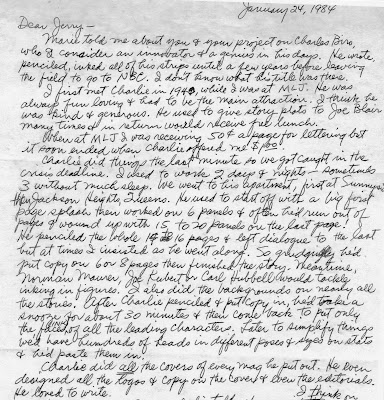 January 24, 1984
Dear Jerry —
Marie told me about you & your project on Charles Biro,
who I consider an innovator & a genius in his days. He wrote,
penciled, inked all of his strips until a few years before leaving
the field to go to NBC. I don't know what his title was there.
I first met Charlie in 1940, while I was at MLJ. He was
always fun loving & had to be the main attraction. I think he
was kind & generous. He used to give story plots to Joe Blair
many times & in return would receive free lunch.
When at MLJ I was receiving 50¢ a page for lettering but
it soon ended when Charlie offered me $1.00!
Charlie did things the last minute so we got caught in the
crisis deadline. I used to work 2 days & nights — sometimes
3 without much sleep. We went to his apartment, first at Sunnyside
then Jackson Heights, Queens. He used to start off with a big first
page splash then worked on 6 panels & often he'd run out of
pages & wound up with 15 to 20 panels on the last page!
He penciled the whole 16 pages & left dialogue to the last
but at times I insisted as he went along. So grudgingly he'd
put copy on 6 or 8 pages then finished the story. Meantime,
Norman Maurer, Joe Kubert or Carl Hubbell would takeby
inking in figures. I also did the backgrounds on nearly all
the stories. After Charlie penciled & put copy in, he'd take a
snooze for about 30 minutes & then come back to put only
the faces of all the leading characters. Later to simplify things
we'd have hundreds of heads in different poses & sizes on stats
& he'd paste them in!
Charlie did all the covers of every mag he put out. He even
designed all the logos & copy on the cover & even the editorials.
He loved to write.
I think on